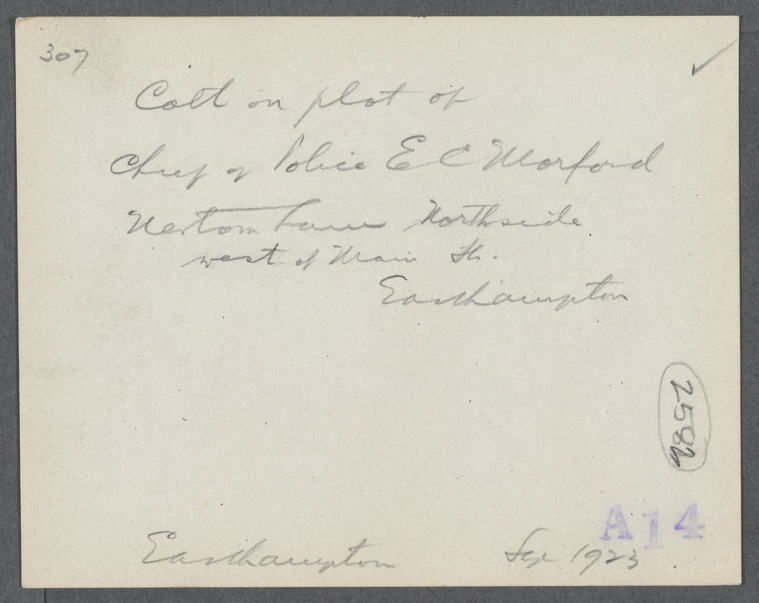 307
✓
on plot of
Chief of Police E C Morford
Newtown Lane Northside
west of Main St.
Easthampton
2582
A14
Easthampton Sep 1923